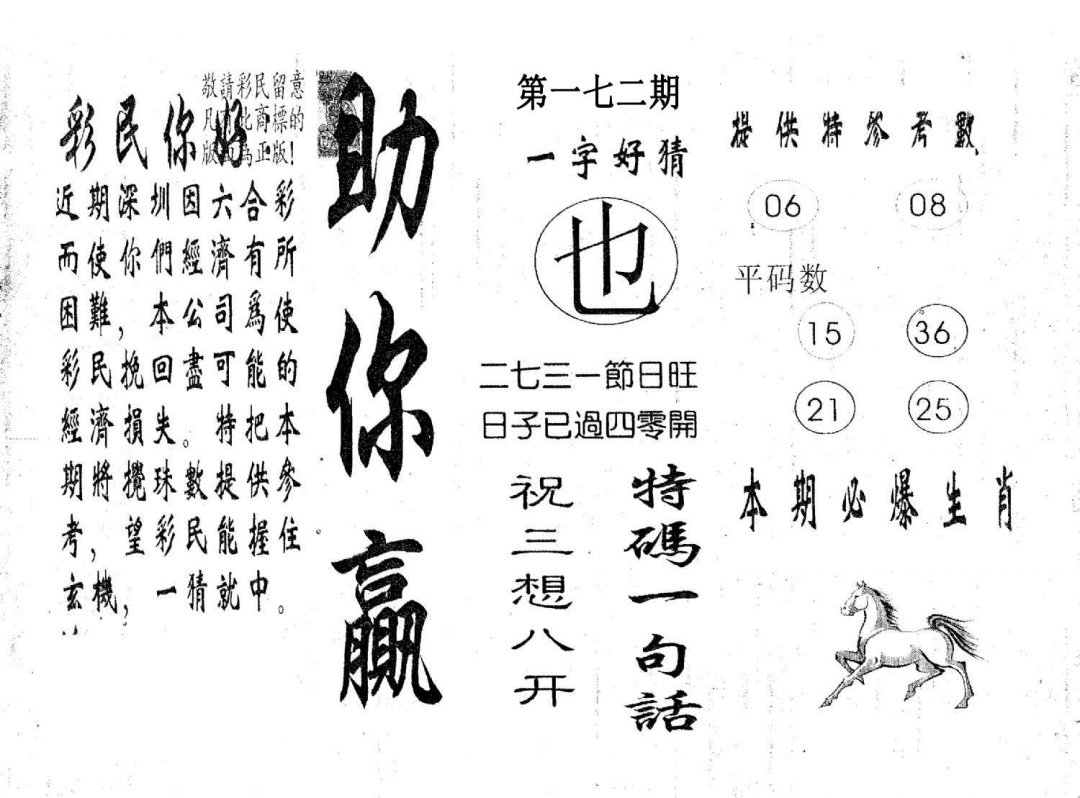 敬請彩民留意
凡 此商標的
版 爲正版!
彩民你好
近期深圳因六合彩
而使你們經濟有所
困難，本公司爲使
彩民挽回盡可能的
經濟損失。特把本
期將攪珠數提供參
考，望彩民能握住
玄機，一猜就中。
助你贏
第一七二期
一字好猜
也
二七三一節日旺
日子已過四零開
特碼一句話
祝三想八开
提供特參考數
06 08
平码数
15 36
21 25
本期必爆生肖